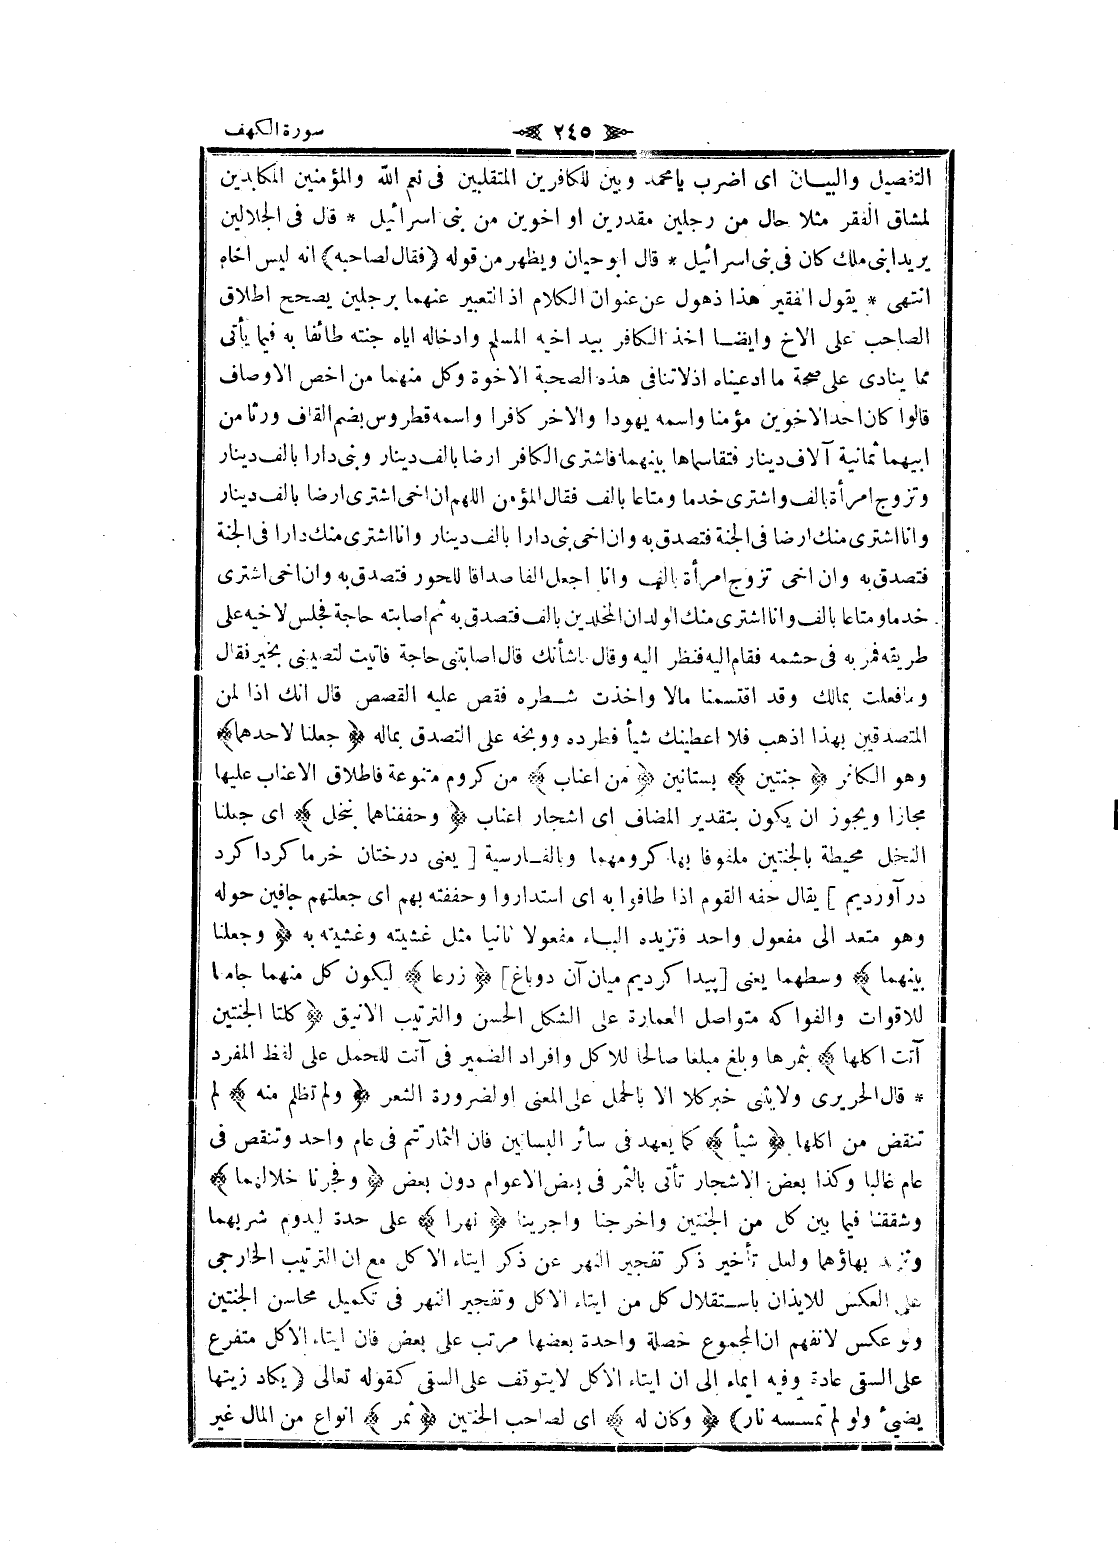 سورة الكهف ٢٤٥
التفصيل والبيان اى اضرب يا محمد وبين للكافرين المتقلبين فى نعم الله والمؤمنين المكابدين
لمشاق الفقر مثلا حال من رجلين مقدرين او اخوين من بنى اسرائيل * قال فى الجلالين
يريد ابنى ملك كان فى بنى اسرائيل * قال ابو حيان ويظهر من قوله (فقال لصاحبه) انه ليس اخاه
انتهى * يقول الفقير هذا ذهول عن عنوان الكلام اذ التعبير عنهما برجلين يصحح اطلاق
الصاحب على الاخ وايضا اخذ الكافر بيد اخيه المسلم وادخاله اياه جنته طائفا به فيما يأتى
مما ينادى على صحة ما ادعيناه اذ لا تنافى هذه الصحبة الاخوة وكل منهما من اخص الاوصاف
قالوا كان احد الاخوين مؤمنا واسمه يهودا والآخر كافرا واسمه قطروس بضم القاف ورثا من
ابيهما ثمانية آلاف دينار فتقاسماها بينهما فاشترى الكافر ارضا بالف دينار وبنى دارا بالف دينار
وتزوج امرأة بالف واشترى خدما ومتاعا بالف فقال المؤمن اللهم ان اخى اشترى ارضا بالف دينار
وانا اشترى منك ارضا فى الجنة فتصدق به وان اخى بنى دارا بالف دينار وانا اشترى منك دارا فى الجنة
فتصدق به وان اخى تزوج امرأة بالف وانا اجعل الفا صداقا للحور فتصدق به وان اخى اشترى
خدما ومتاعا بالف وانا اشترى منك الولدان المخلدين بالف فتصدق به ثم اصابته حاجة فجلس لاخيه على
طريقه فمر به فى حشمه فقام اليه فنظر اليه وقال ما شأنك قال اصابتنى حاجة فاتيت لتصيبنى بخير فقال
وما فعلت بمالك وقد اقتسمنا مالا واخذت شطره فقص عليه القصص قال انك اذا لمن
المتصدقين بهذا اذهب فلا اعطيك شيأ فطرده ووبخه على التصدق بماله ﴿ جعلنا لاحدهما ﴾
وهو الكافر ﴿ جنتين ﴾ بستانين ﴿ من اعناب ﴾ من كروم متنوعة فاطلاق الاعناب عليها
مجازا ويجوز ان يكون بتقدير المضاف اى اشجار اعناب ﴿ وحففناهما بنخل ﴾ اى جعلنا
النخل محيطة بالجنتين ملفوفا بها كرومهما وبالفارسية [ يعنى درختان خرما كردا كرد
در آورديم ] يقال حفه القوم اذا طافوا به اى استداروا وحففته بهم اى جعلتهم حافين حوله
وهو متعد الى مفعول واحد فتزيده الباء مفعولا ثانيا مثل غشيته وغشيته به ﴿ وجعلنا
بينهما ﴾ وسطهما يعنى [پيدا كرديم ميان آن دوباغ] ﴿ زرعا ﴾ ليكون كل منهما جامعا
للاقوات والفواكه متواصل العمارة على الشكل الحسن والترتيب الانيق ﴿ كلتا الجنتين
آتت اكلها ﴾ ثمرها وبلغ مبلغا صالحا للاكل وافراد الضمير فى آتت للحمل على لفظ المفرد
* قال الحريرى ولا يثنى خبر كلا الا بالحمل على المعنى او لضرورة الشعر ﴿ ولم تظلم منه ﴾ لم
تنقص من اكلها ﴿ شيأ ﴾ كما يعهد فى سائر البساتين فان الثمار تتم فى عام واحد وتنقص فى
عام غالبا وكذا بعض الاشجار تأتى بالثمر فى بعض الاعوام دون بعض ﴿ وفجرنا خلالهما ﴾
وشققنا فيما بين كل من الجنتين واخرجنا واجرينا ﴿ نهرا ﴾ على حدة ليدوم شربهما
وتزيد بهاؤهما ولعل تأخير ذكر تفجير النهر عن ذكر ايتاء الاكل مع ان الترتيب الخارجى
على العكس للايذان باستقلال كل من ايتاء الاكل وتفجير النهر فى تكميل محاسن الجنتين
ولو عكس لانفهم ان المجموع خصلة واحدة بعضها مرتب على بعض فان ايتاء الاكل متفرع
على السقى عادة وفيه ايماء الى ان ايتاء الاكل لا يتوقف على السقى كقوله تعالى (يكاد زيتها
يضئ ولو لم تمسسه نار) ﴿ وكان له ﴾ اى لصاحب الجنتين ﴿ ثمر ﴾ انواع من المال غير